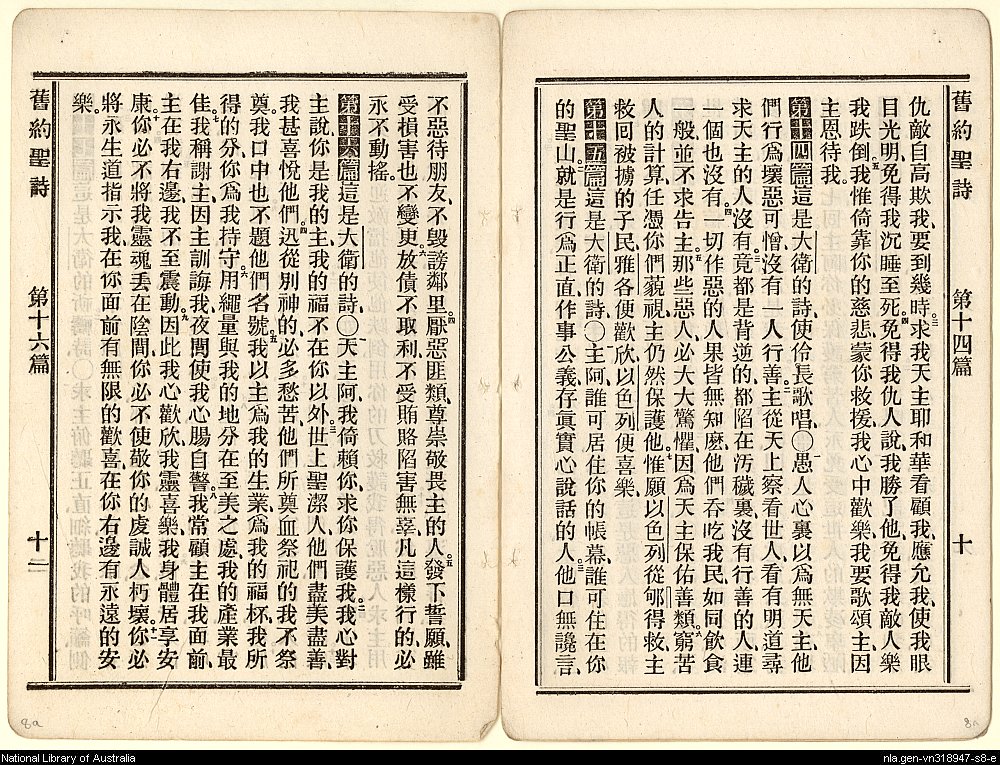 舊約聖詩 第十四篇 十
仇敵自高欺我、要到幾時。三求我天主耶和華看顧我、應允我、使我眼
目光明、免得我沉睡至死。四免得我仇人說、我勝了他、免得我敵人樂
我跌倒。五我惟倚靠你的慈悲、蒙你救援、我心中歡樂。我要歌頌主、因
主恩待我。
第十四篇這是大衛的詩、使伶長歌唱、〇一愚人心裏以爲無天主、他
們行爲壞惡可憎、沒有一人行善。二主從天上察看世人、看有明道尋
求天主的人沒有。三竟都是背逆的、都陷在汚穢裏、沒有行善的人、連
一個也沒有。四一切作惡的人、果皆無知麽、他們吞吃我民、如同飲食
一般、並不求告主。五那些惡人、必大大驚懼、因爲天主保佑善類。六窮苦
人的計算、任憑你們藐視、主仍然保護他。七惟願以色列從郇得救、主
救回被擄的子民、雅各便歡欣、以色列便喜樂。
第十五篇這是大衛的詩、〇主阿、誰可居住你的帳幕、誰可住在你
的聖山。二就是行爲正直、作事公義、存眞實心說話的人。三他口無讒言、
不惡待朋友、不毁謗鄰里。四厭惡匪類、尊崇敬畏主的人。五發下誓願、雖
受損害也不變更。六放債不取利、不受賄賂陷害無辜、凡這樣行的、必
永不動搖。
第十六篇這是大衛的詩、〇天主阿、我倚賴你、求你保護我。二我心對
主說、你是我的主、我的福不在你以外。三世上聖潔人、他們盡美盡善、
我甚喜悅他們。四迅從別神的、必多愁苦、他們所奠血祭祀的、我不祭
奠、我口中也不題他們名號。五我以主爲我的生業、爲我的福杯、我所
得的分、你爲我持守。六用繩量與我的地分、在至美之處、我的產業最
佳。七我稱謝主、因主訓誨我、夜間使我心腸自警。八我常顧主在我面前、
主在我右邊、我不至震動。九因此我心歡欣、我靈喜樂、我身體居享安
康。十你必不將我靈魂丟在陰間、你必不使敬你的虔誠人朽壞。十一你必
將永生道指示我、在你面前有無限的歡喜、在你右邊有永遠的安
樂。
舊約聖詩 第十六篇 十二
8a
8a
National Library of Australia
nla.gen-vn318947-s8-e